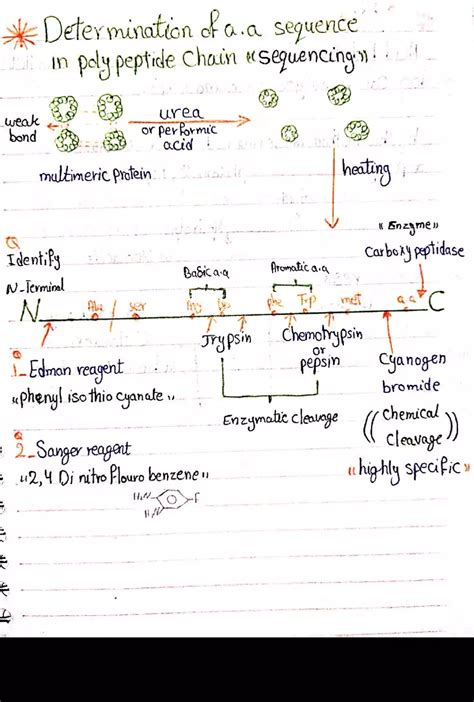 Determination of a.a sequence
in poly peptide Chain "sequencing".
weak bond
urea
or performic acid
multimeric protein
heating
Q
Identify
N-Terminal
Basic a.a
Aromatic a.a
"Enzyme"
Carboxy peptidase
N
Ala
ser
Arg
lys
phe
Trp
met
a.a
C
Trypsin
Chemotrypsin
or
pepsin
Cyanogen
bromide
1- Edman reagent
"phenyl iso thio cyanate"
Enzymatic cleavage
(( Chemical
Cleavage ))
"highly specific"
Q
2- Sanger reagent
"2,4 Di nitro flouro benzene"
H₂N
H₂N
F